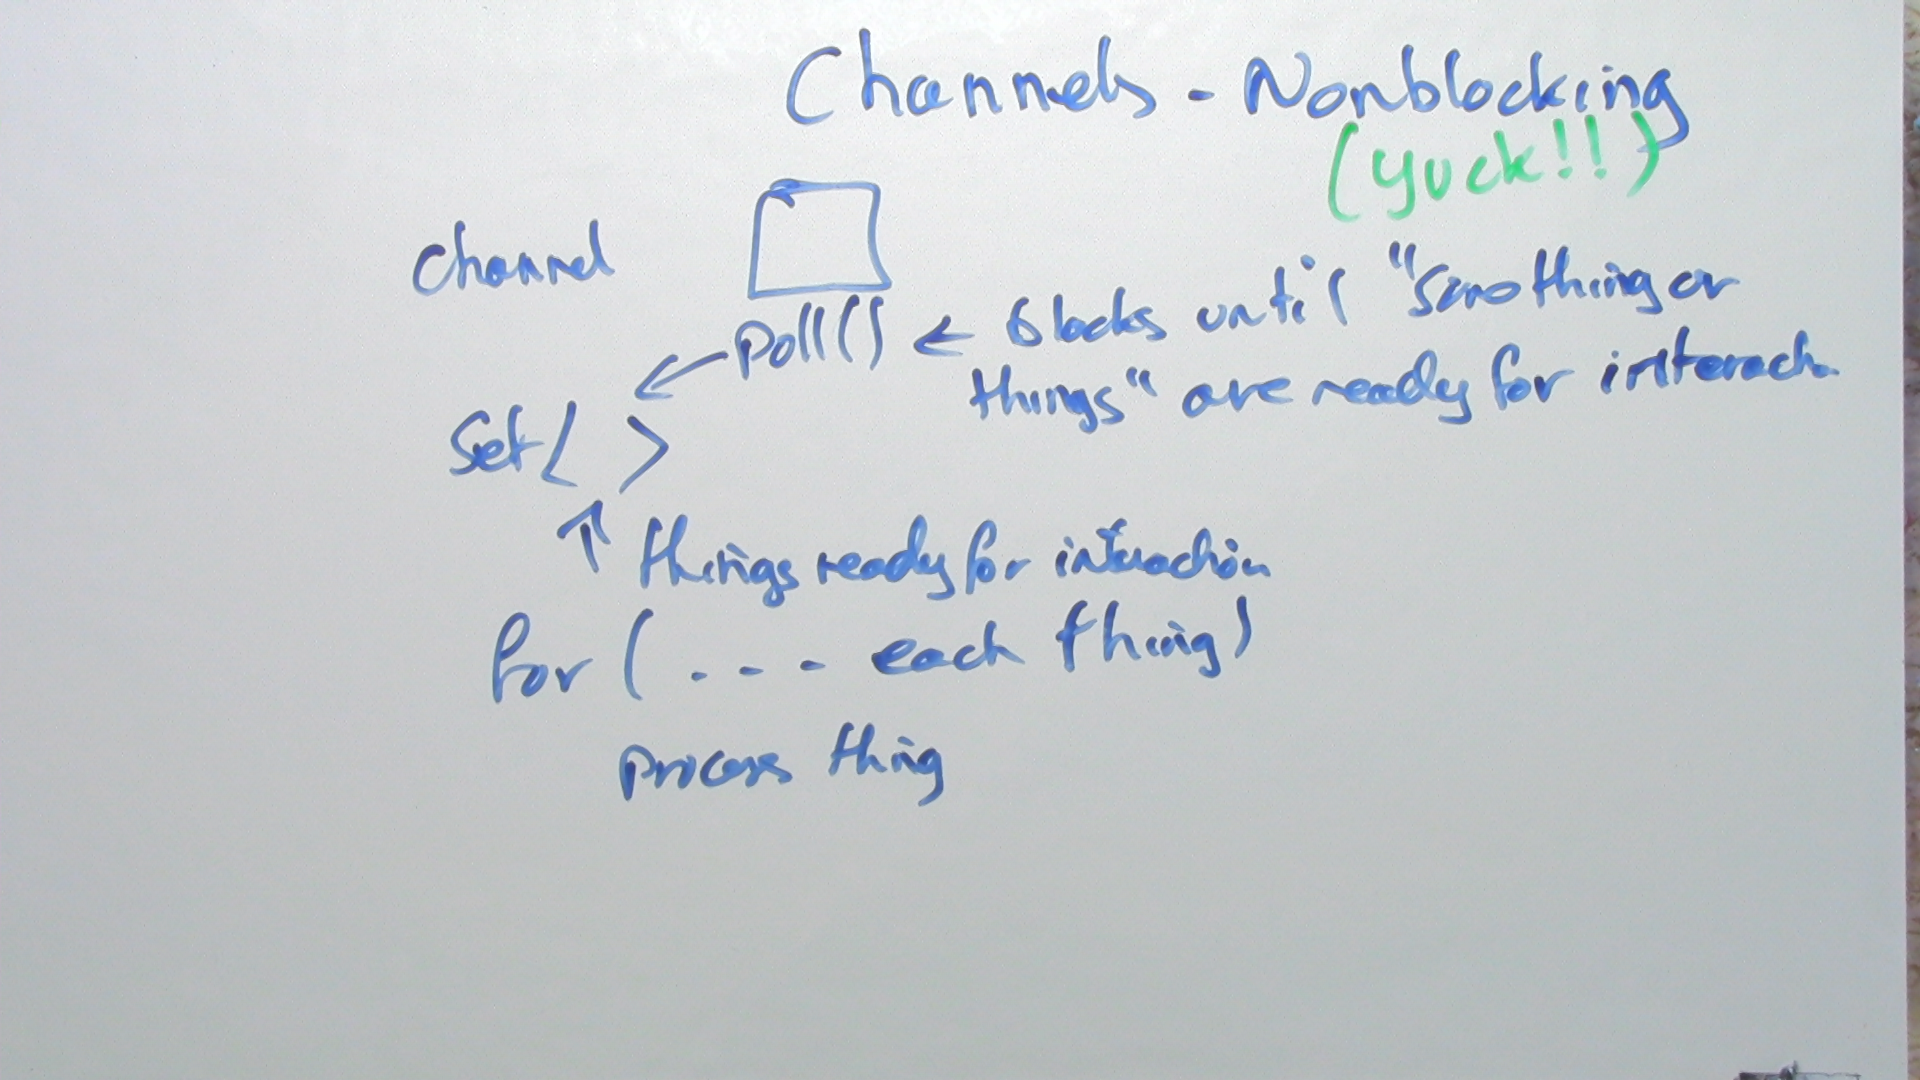 Channels - Nonblocking
(yuck!!)
Channel
Poll() ← blocks until "Something or
things" are ready for interact
Set< >
↑ things ready for interaction
for ( . . . each thing)
process thing